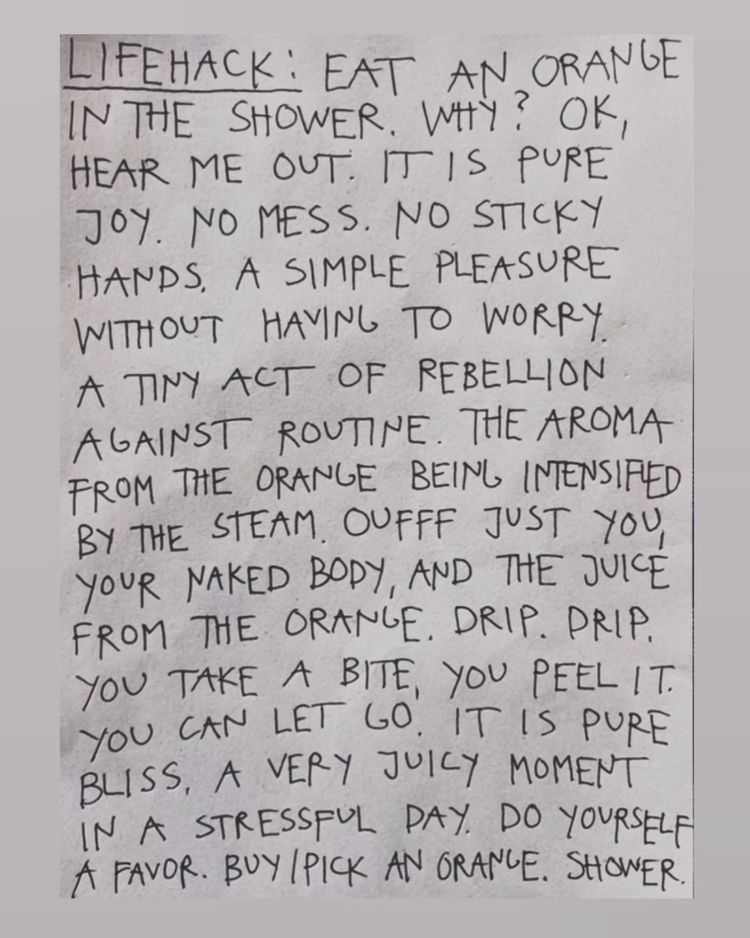 LIFEHACK: EAT AN ORANGE
IN THE SHOWER. WHY? OK,
HEAR ME OUT. IT IS PURE
JOY. NO MESS. NO STICKY
HANDS. A SIMPLE PLEASURE
WITHOUT HAVING TO WORRY.
A TINY ACT OF REBELLION
AGAINST ROUTINE. THE AROMA
FROM THE ORANGE BEING INTENSIFIED
BY THE STEAM. OUFFF JUST YOU,
YOUR NAKED BODY, AND THE JUICE
FROM THE ORANGE. DRIP. DRIP.
YOU TAKE A BITE, YOU PEEL IT.
YOU CAN LET GO. IT IS PURE
BLISS. A VERY JUICY MOMENT
IN A STRESSFUL DAY. DO YOURSELF
A FAVOR. BUY/PICK AN ORANGE. SHOWER.